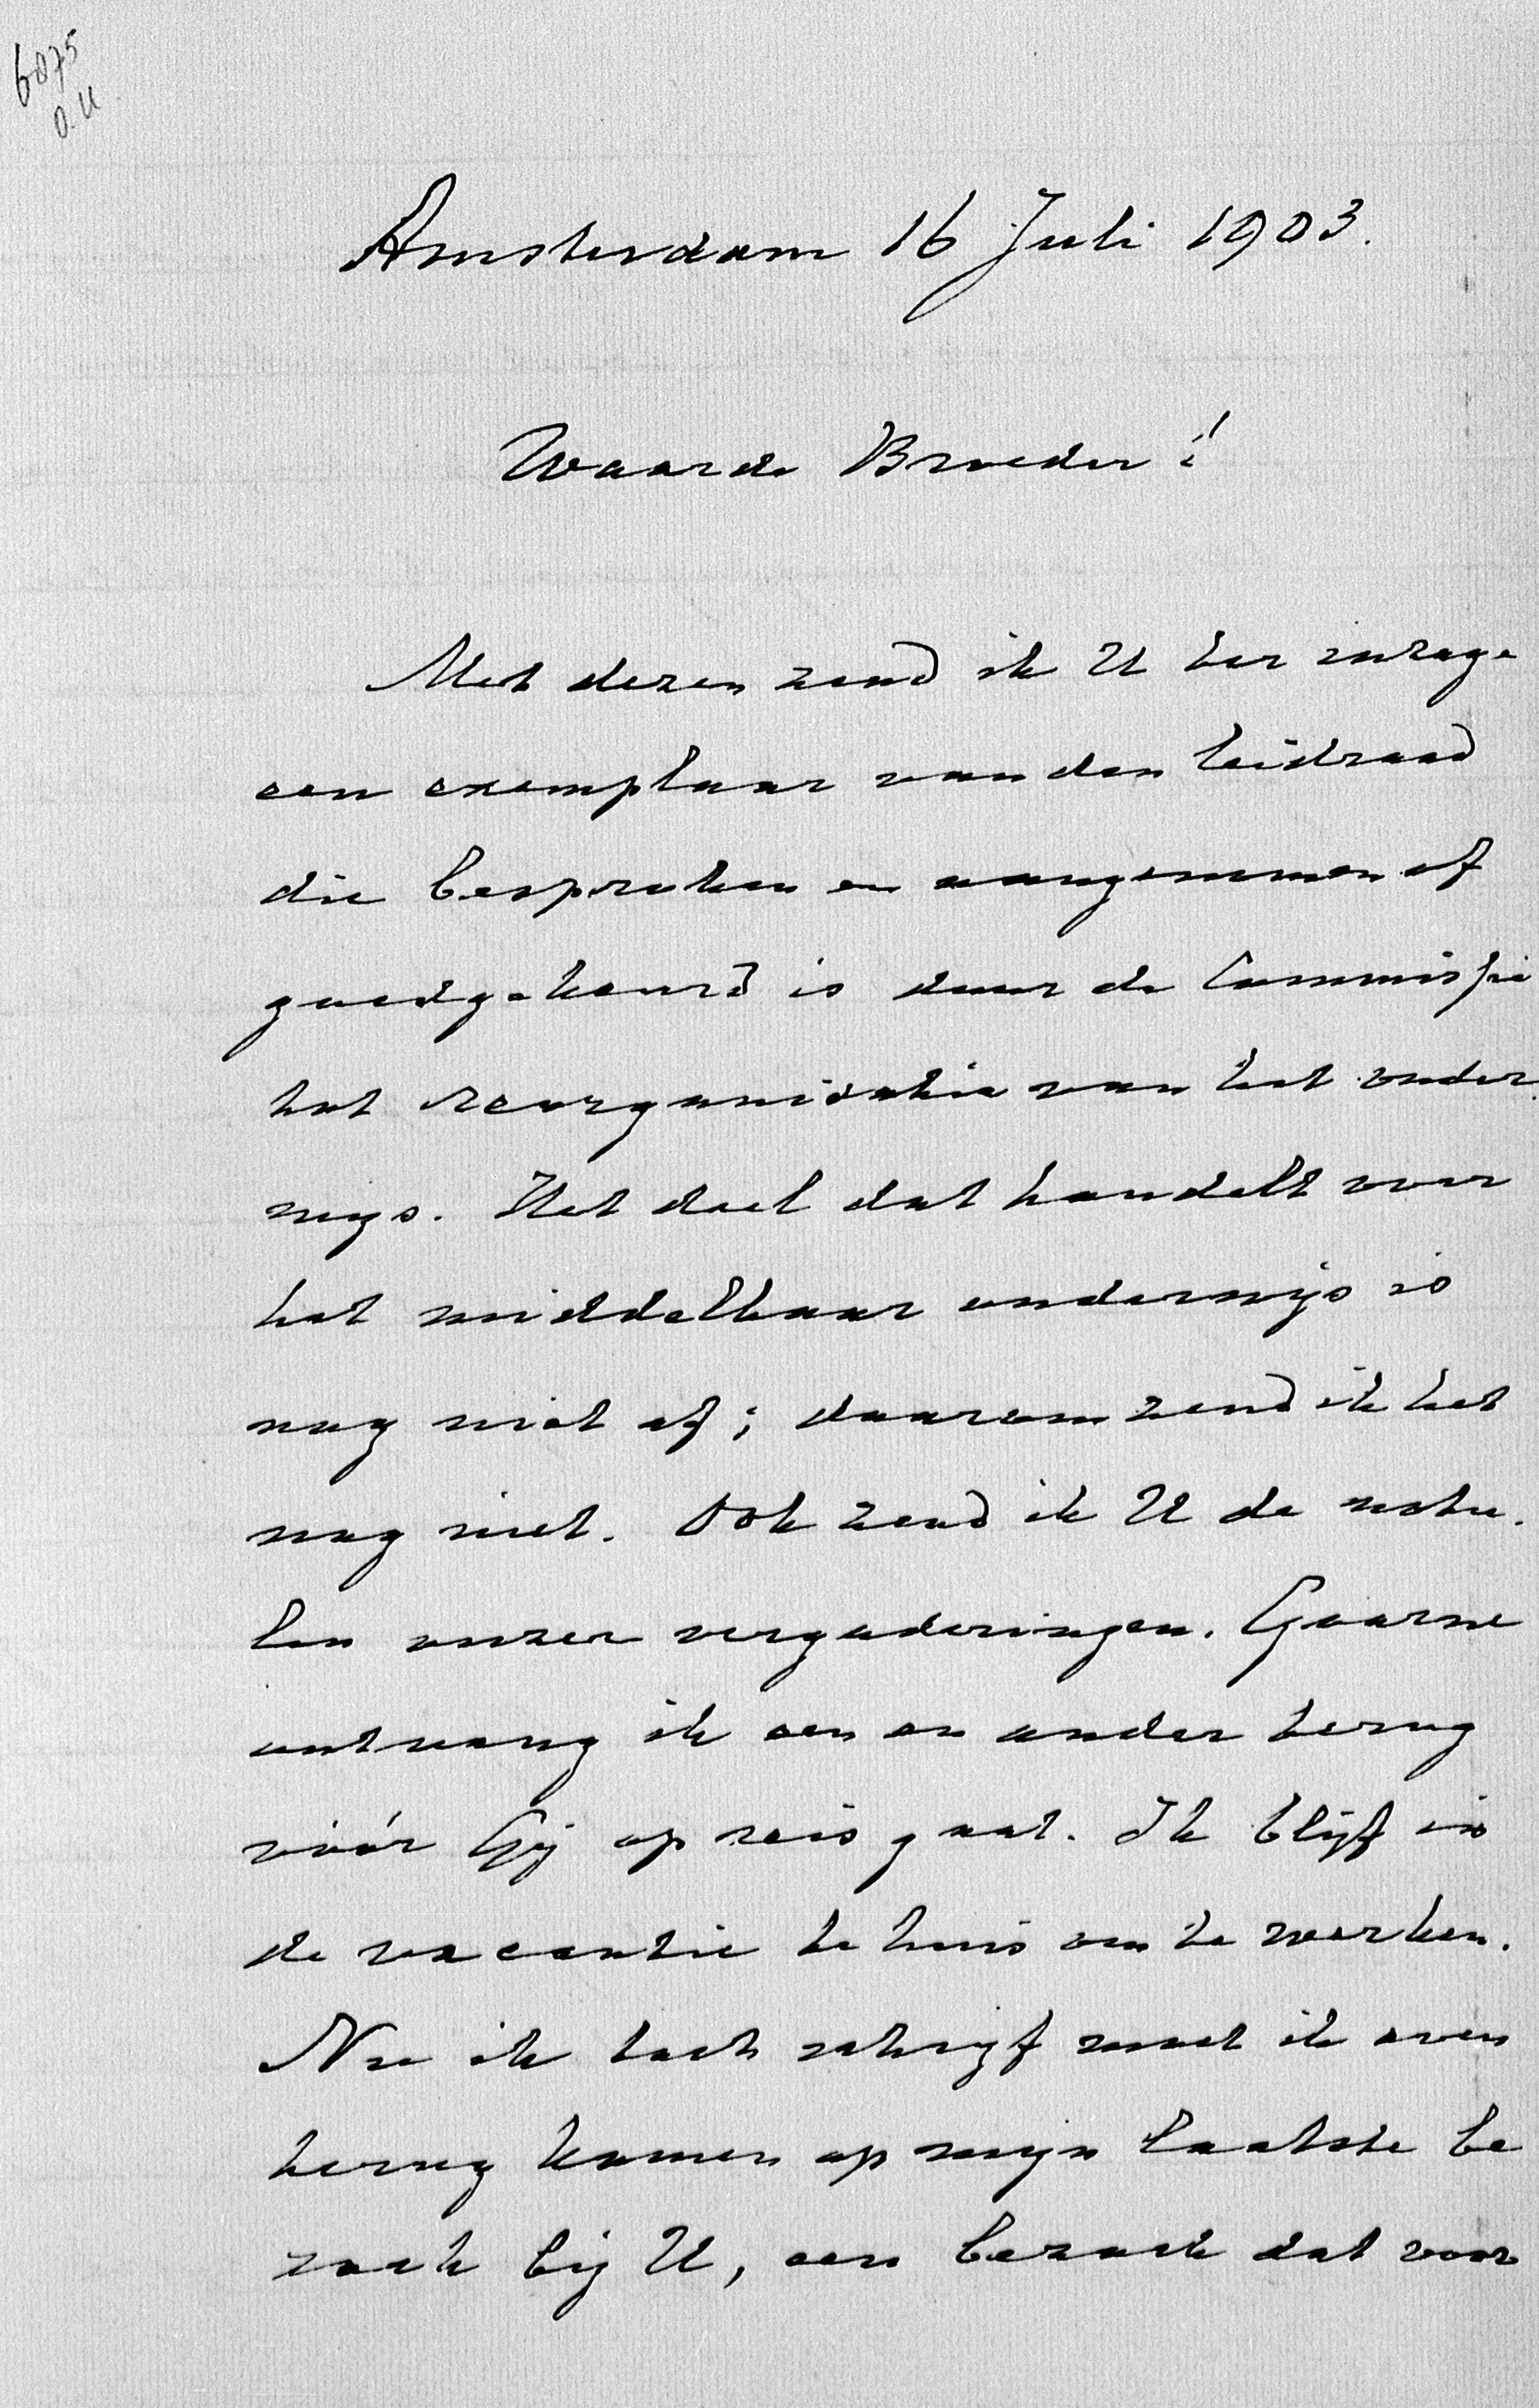 6075
O.U
Amsterdam 16 Juli 1903.
Waarde Broeder!
Met dezen zend ik U ter inzage
een exemplaar van den leidraad
die besproken en aangenomen of
goedgekeurd is door de Commissie
tot reorganisatie van het onder
wijs. Het deel dat handelt over
het middelbaar onderwijs is
nog niet af; daarom zend ik het
nog niet. Ook zend ik U de notu-
len onzer vergaderingen. Gaarne
ontvang ik een en ander terug
vóór Gij op reis gaat. Ik blijf in
de vacantie te huis om te werken.
Nu ik toch schrijf moet ik even
terug komen op mijn laatste be
zoek bij U, een bezoek dat voor